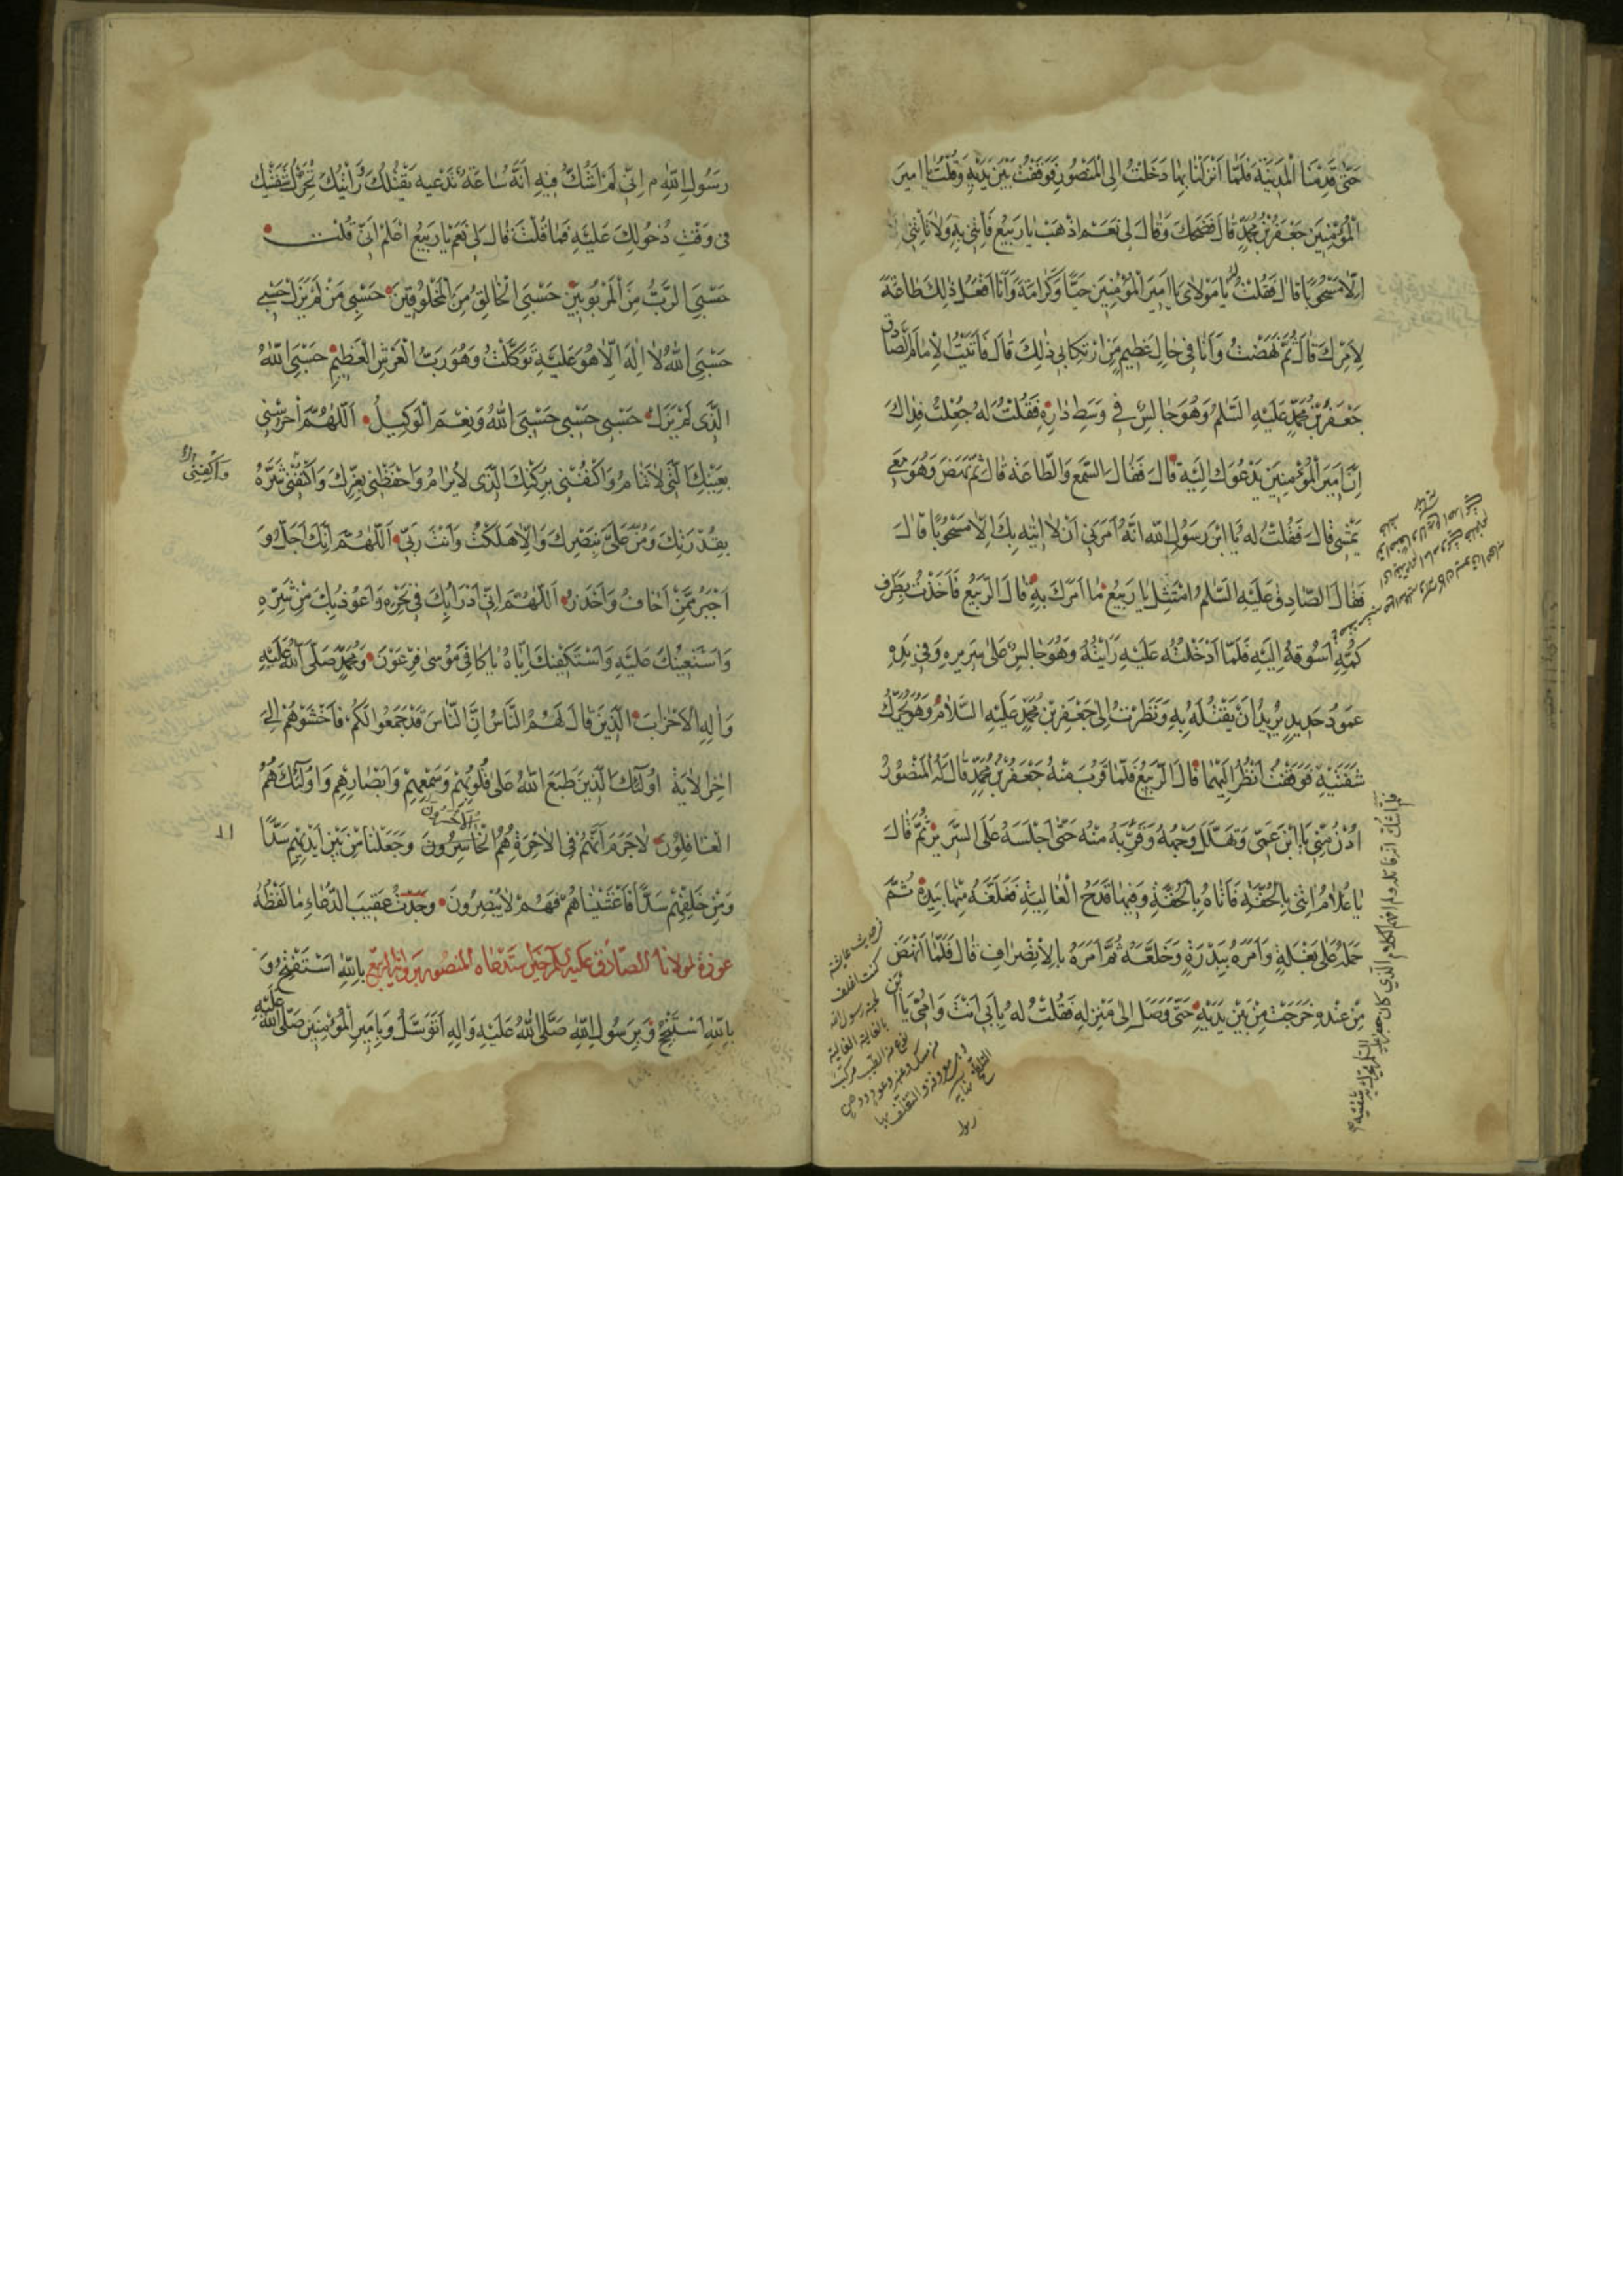 حَتّٰى قَدِمْنَا الْمَدِينَةَ فَلَمَّا اَنْزَلَنَا بِهَا دَخَلْتُ اِلَى الْمَنْصُورِ فَوَقَفْتُ بَيْنَ يَدَيْهِ وَقُلْتُ يَا اَمِيرَ
الْمُؤْمِنِينَ جَعْفَرُ بْنُ مُحَمَّدٍ قَالَ فَضَحِكَ وَقَالَ لِي نَعَمْ اِذْهَبْ يَا رَبِيعُ فَأْتِنِي بِهِ وَلَا تَأْتِنِي
اِلَّا مَسْحُوبًا قَالَ فَقُلْتُ لَهُ يَا مَوْلَايَ يَا اَمِيرَ الْمُؤْمِنِينَ حُبًّا وَكَرَامَةً وَاَنَا اَفْعَلُ ذٰلِكَ طَاعَةً
لِاَمْرِكَ قَالَ ثُمَّ نَهَضْتُ وَاَنَا فِي حَالٍ عَظِيمٍ مِنِ ارْتِكَابِي ذٰلِكَ قَالَ فَاَتَيْتُ الْاِمَامَ الصَّادِقَ
جَعْفَرَ بْنَ مُحَمَّدٍ عَلَيْهِ السَّلٰمُ وَهُوَ جَالِسٌ فِي وَسَطِ دَارِهِ فَقُلْتُ لَهُ جُعِلْتُ فِدَاكَ
اِنَّ اَمِيرَ الْمُؤْمِنِينَ يَدْعُوكَ اِلَيْهِ قَالَ فَقَالَ السَّمْعَ وَالطَّاعَةَ قَالَ ثُمَّ نَهَضَ وَهُوَ مَعِي
يَمْشِي قَالَ فَقُلْتُ لَهُ يَا ابْنَ رَسُولِ اللّٰهِ اِنَّهُ اَمَرَنِي اَنْ لَا اٰتِيَهُ بِكَ اِلَّا مَسْحُوبًا قَالَ
فَقَالَ الصَّادِقُ عَلَيْهِ السَّلٰمُ امْتَثِلْ يَا رَبِيعُ مَا اَمَرَكَ بِهِ قَالَ الرَّبِيعُ فَاَخَذْتُ بِطَرَفِ
كُمِّهِ اَسُوقُهُ اِلَيْهِ فَلَمَّا اَدْخَلْتُهُ عَلَيْهِ رَاَيْتُهُ وَهُوَ جَالِسٌ عَلٰى سَرِيرِهِ وَفِي يَدِهِ
عَمُودُ حَدِيدٍ يُرِيدُ اَنْ يَقْتُلَهُ بِهِ وَنَظَرْتُ اِلٰى جَعْفَرِ بْنِ مُحَمَّدٍ عَلَيْهِ السَّلَامُ وَهُوَ يُحَرِّكُ
شَفَتَيْهِ فَوَقَفْتُ اَنْظُرُ اِلَيْهِمَا قَالَ الرَّبِيعُ فَلَمَّا قَرُبَ مِنْهُ جَعْفَرُ بْنُ مُحَمَّدٍ قَالَ لَهُ الْمَنْصُورُ
اُدْنُ مِنِّي يَا ابْنَ عَمِّي وَتَهَلَّلَ وَجْهُهُ وَقَرَّبَهُ مِنْهُ حَتّٰى اَجْلَسَهُ عَلَى السَّرِيرِ ثُمَّ قَالَ
يَا غُلَامُ ائْتِنِي بِالْحُقَّةِ فَاَتَاهُ بِالْحُقَّةِ وَفِيهَا قَدَحُ الْغَالِيَةِ فَغَلَّفَهُ مِنْهَا بِيَدِهِ ثُمَّ
حَمَلَهُ عَلٰى بَغْلَةٍ وَاَمَرَ لَهُ بِبَدْرَةٍ وَخِلْعَةٍ ثُمَّ اَمَرَهُ بِالْاِنْصِرَافِ قَالَ فَلَمَّا نَهَضَ
مِنْ عِنْدِهِ خَرَجْتُ مِنْ بَيْنِ يَدَيْهِ حَتّٰى وَصَلَ اِلٰى مَنْزِلِهِ فَقُلْتُ لَهُ بِاَبِي اَنْتَ وَاُمِّي يَا ابْنَ
كنت اغلف
لحية رسول الله
بالغالية الغالية
نوع من الطيب مركب
من مسك وعنبر وعود ودهن
رَسُولِ اللّٰهِ م اِنِّي لَمْ اَشُكَّ فِيهِ اَنَّهُ سَاعَةَ تَدْخُلُ عَلَيْهِ يَقْتُلُكَ وَرَاَيْتُكَ تُحَرِّكُ شَفَتَيْكَ
فِي وَقْتِ دُخُولِكَ عَلَيْهِ فَمَا قُلْتَ قَالَ لِي نَعَمْ يَا رَبِيعُ اعْلَمْ اَنِّي قُلْتُ
حَسْبِيَ الرَّبُّ مِنَ الْمَرْبُوبِينَ حَسْبِيَ الْخَالِقُ مِنَ الْمَخْلُوقِينَ حَسْبِي مَنْ لَمْ يَزَلْ حَسْبِي
حَسْبِيَ اللّٰهُ لَا اِلٰهَ اِلَّا هُوَ عَلَيْهِ تَوَكَّلْتُ وَهُوَ رَبُّ الْعَرْشِ الْعَظِيمِ حَسْبِيَ اللّٰهُ
الَّذِي لَمْ يَزَلْ حَسْبِي حَسْبِي حَسْبِيَ اللّٰهُ وَنِعْمَ الْوَكِيلُ اَللّٰهُمَّ احْرُسْنِي
بِعَيْنِكَ الَّتِي لَا تَنَامُ وَاكْنُفْنِي بِرُكْنِكَ الَّذِي لَا يُرَامُ وَاحْفَظْنِي بِعِزِّكَ وَاكْنُفْنِي شَرَّهُ
وَاكْفِنِي
بِقُدْرَتِكَ وَمُنَّ عَلَيَّ بِنَصْرِكَ وَاِلَّا هَلَكْتُ وَاَنْتَ رَبِّي اَللّٰهُمَّ اِنَّكَ اَجَلُّ وَ
اَجْبَرُ مِمَّنْ اَخَافُ وَاَحْذَرُ اَللّٰهُمَّ اِنِّي اَدْرَاُ بِكَ فِي نَحْرِهِ وَاَعُوذُ بِكَ مِنْ شَرِّهِ
وَاَسْتَعِينُكَ عَلَيْهِ وَاَسْتَكْفِيكَ اِيَّاهُ يَا كَافِيَ مُوسٰى فِرْعَوْنَ وَمُحَمَّدٍ صَلَّى اللّٰهُ عَلَيْهِ
وَاٰلِهِ الْاَحْزَابَ الَّذِينَ قَالَ لَهُمُ النَّاسُ اِنَّ النَّاسَ قَدْ جَمَعُوا لَكُمْ فَاخْشَوْهُمْ اِلٰى
اٰخِرِ الْاٰيَةِ اُولٰئِكَ الَّذِينَ طَبَعَ اللّٰهُ عَلٰى قُلُوبِهِمْ وَسَمْعِهِمْ وَاَبْصَارِهِمْ وَاُولٰئِكَ هُمُ
الْغَافِلُونَ لَا جَرَمَ اَنَّهُمْ فِي الْاٰخِرَةِ هُمُ الْخَاسِرُونَ وَجَعَلْنَا مِنْ بَيْنِ اَيْدِيهِمْ سَدًّا
وَمِنْ خَلْفِهِمْ سَدًّا فَاَغْشَيْنَاهُمْ فَهُمْ لَا يُبْصِرُونَ وَجَدْتُ عَقِيبَ الدُّعَاءِ مَا لَفْظُهُ
عوذة لمولانا الصادق عليه السلم حين استدعاه المنصور برواية الربيع بِاللّٰهِ اَسْتَفْتِحُ وَ
بِاللّٰهِ اَسْتَنْجِحُ وَبِرَسُولِ اللّٰهِ صَلَّى اللّٰهُ عَلَيْهِ وَاٰلِهِ اَتَوَسَّلُ وَبِاَمِيرِ الْمُؤْمِنِينَ صَلَّى اللّٰهُ عَلَيْهِ